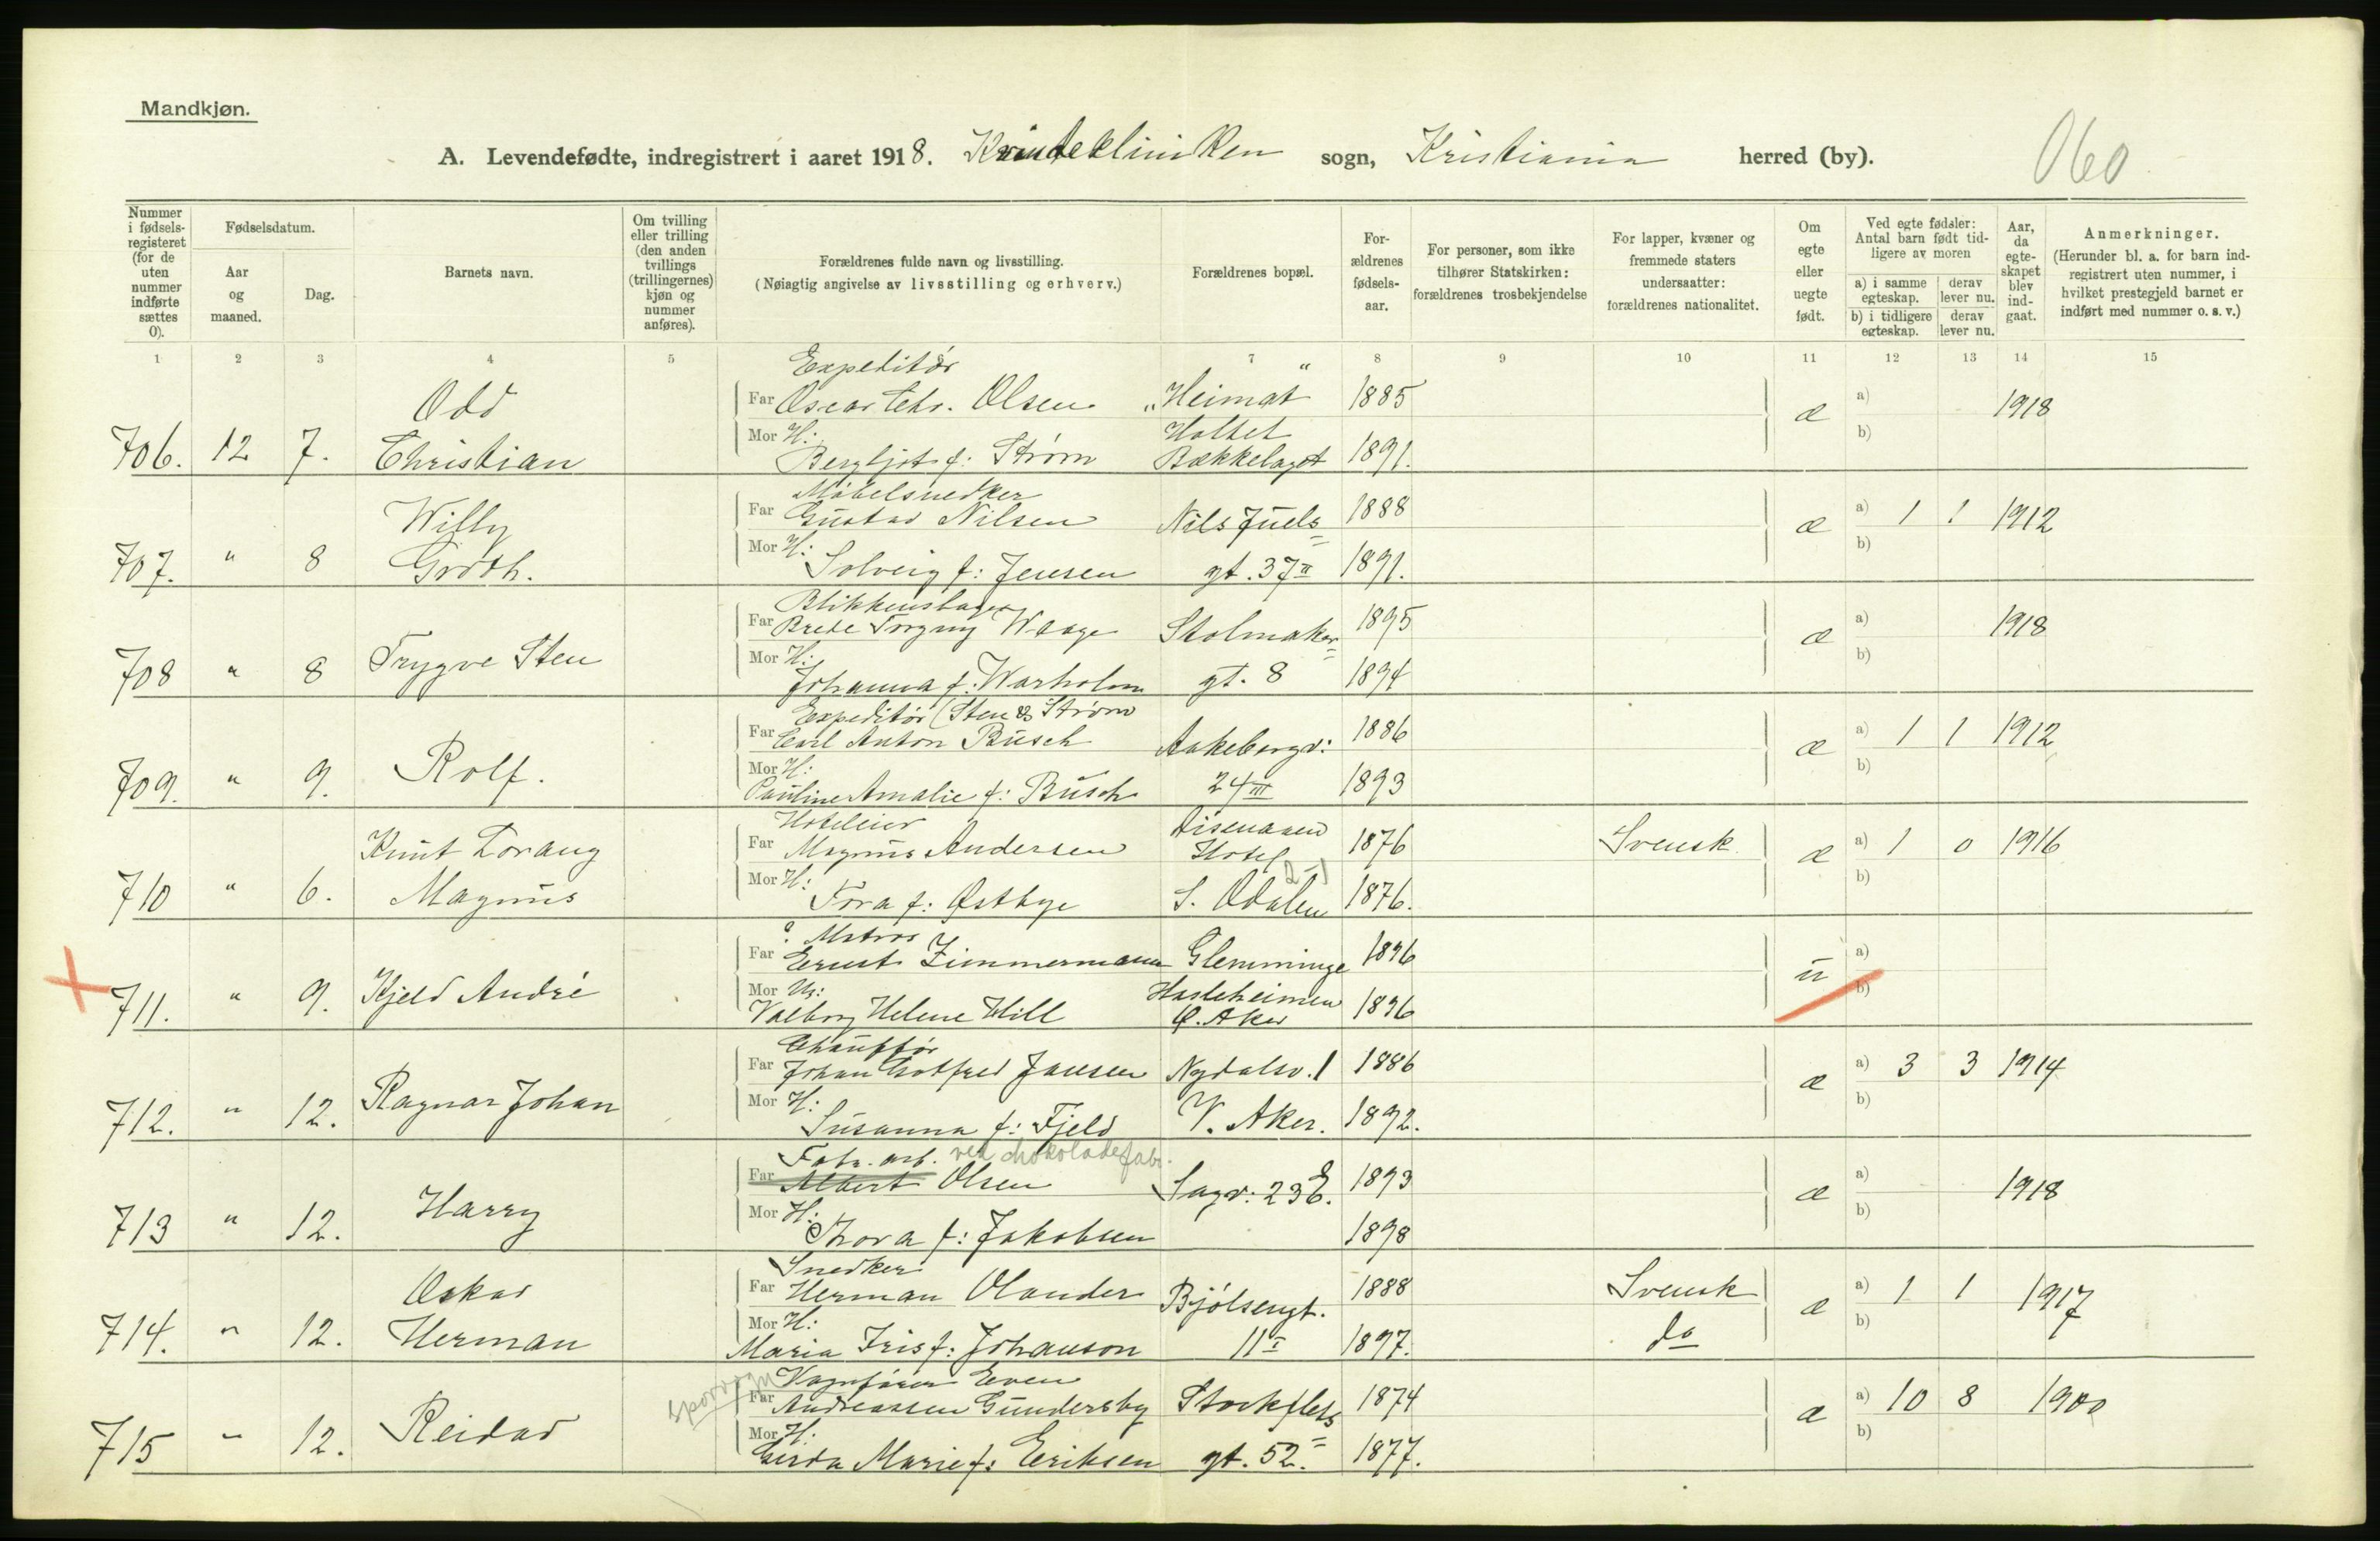 Mandkjøn.
A. Levendefødte, indregistrert i aaret 1918. Kvindeklinikken sogn, Kristiania herred (by).
060
Nummer i fødsels-registeret (for de uten nummer indførte sættes 0).
Fødselsdatum.
Aar og maaned.
Dag.
Barnets navn.
Om tvilling eller trilling (den anden tvillings (trillingernes) kjøn og nummer anføres).
Forældrenes fulde navn og livsstilling.
(Nøiagtig angivelse av livsstilling og erhverv.)
Forældrenes bopæl.
For-ældrenes fødsels-aar.
For personer, som ikke tilhører Statskirken: forældrenes trosbekjendelse
For lapper, kvæner og fremmede staters undersaatter: forældrenes nationalitet.
Om egte eller uegte født.
Ved egte fødsler: Antal barn født tid-ligere av moren
a) i samme egteskap. derav lever nu.
b) i tidligere egteskap. derav lever nu.
Aar, da egte-skapet blev ind-gaat.
Anmerkninger.
(Herunder bl. a. for barn ind-registrert uten nummer, i hvilket prestegjeld barnet er indført med nummer o. s. v.)
1 2 3 4 5 6 7 8 9 10 11 12 13 14 15
Expeditør
Odd Far Oscar Chr. Olsen „Heimat“ 1885 æ a) 1918
Mor H: Holtet b)
706. 12 7. Christian Bergljot f: Strøm Bækkelaget 1891.
Møbelsnedker
Willy Far Gustav Nilsen Nils Juels= 1888 æ a) 1 1 1912
Mor H: b)
707. " 8 Groth. Solveig f: Jensen gt. 37 II 1891.
Blikkenslager
Far Brede Torgny Waage Stolmaker= 1895 æ a) 1918
708 " 8 Trygve Sten Mor H: b)
Johanna f: Warholm gt. 8 1894
Expeditør (Sten & Strøm
Far Carl Anton Busch Aakebergv: 1886 æ a) 1 1 1912
709. " 9. Rolf. Mor H: b)
Pauline Amalie f: Busch 24 III 1893
Hoteleier
Knut Far Magnus Andersen Hotel 1876 Svensk æ a) 1 0 1916
Mor H: 2-1 b)
710 " 6. Magnus Tora f: Østbye S. Odalen 1876.
? Matros
Far Ernst Zimmermann Glemminge 1896 u a)
711. " 9. Kjeld André Mor Ug: Hasleheimen b)
Valborg Helene Hill Ø. Aker 1896
Chauffør
Far Johan Gotfred Jansen Nydalsv. 1 1886 æ a) 3 3 1914
712. " 12. Ragnar Johan Mor H: b)
Susanna f: Fjeld V. Aker. 1892.
Fabr. arb. ved chokoladefabr.
Far Albert Olsen Sagv: 23 E. 1893 æ a) 1918
713 " 12. Harry Mor H: b)
Thora f: Jakobsen 1898
Snedker
Oskar Far Herman Olander Bjølsengt. 1888 Svensk æ a) 1 1 1917
Mor H: do b)
714. " 12. Herman Maria Iris f: Johanson 11 I 1897.
sporvogn Vognfører Even
Far Andreassen Gundersby Stockflets= 1874 æ a) 10 8 1900
715 " 12. Reidar Mor H: b)
Gerda Marie f: Eriksen gt. 52. 1877.